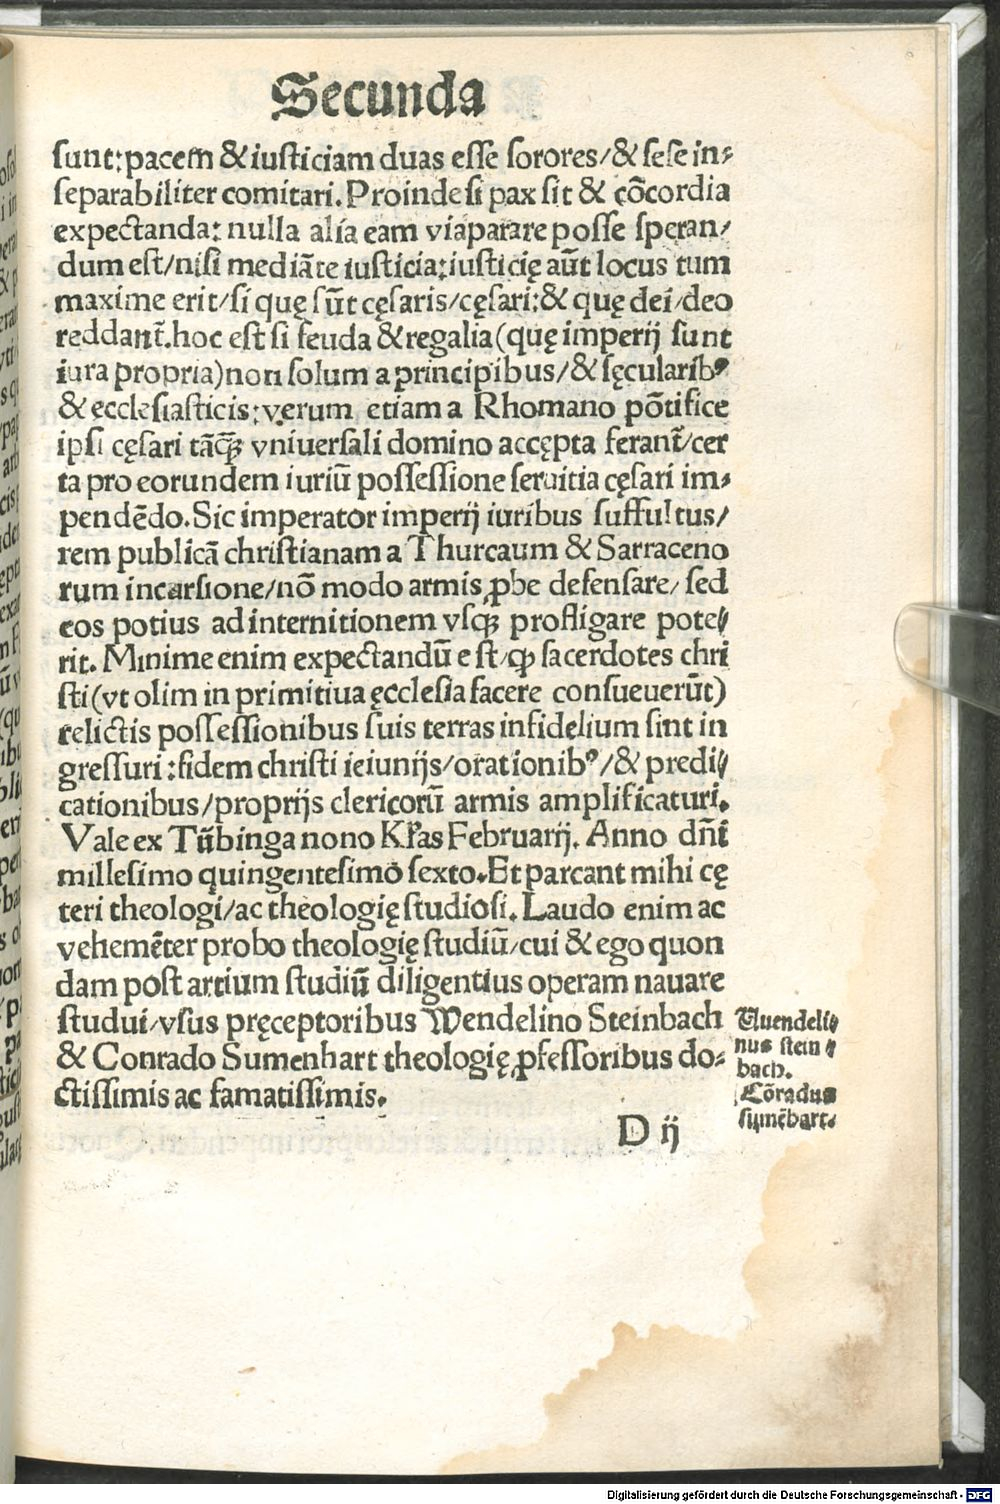 Secunda
sunt: pacem & iusticiam duas esse sorores/ & sese in⸗
separabiliter comitari. Proinde si pax sit & cõcordia
expectanda: nulla alia eam via parare posse speran/
dum est/ nisi mediãte iusticia: iusticię aũt locus tum
maxime erit/ si quę sũt cęsaris/ cęsari: & quę dei/ deo
reddant᷑. hoc est si feuda & regalia (quę imperij sunt
iura propria) non solum a principibus/ & sęcularibꝰ
& ecclesiasticis: verum etiam a Rhomano põtifice
ipsi cęsari tãꝙ̃ vniuersali domino accępta ferant᷑/ cer
ta pro eorundem iuriũ possessione seruitia cęsari im⸗
pendẽdo. Sic imperator imperij iuribus suffultus/
rem publicã christianam a Thurcaum & Sarraceno
rum incursione/ nõ modo armis ꝓbe defensare/ sed
eos potius ad internitionem vsqꝫ profligare pote⸗
rit. Minime enim expectandũ est/ ꝙ sacerdotes chri
sti (vt olim in primitiua ęcclesia facere consueuerũt)
relictis possessionibus suis terras infidelium sint in
gressuri: fidem christi ieiunijs/ orationibꝰ/ & predi⸗
cationibus/ proprijs clericorũ armis amplificaturi.
Vale ex Tũbinga nono Kl'as Februarij. Anno dñi
millesimo quingentesimo sexto. Et parcant mihi cę
teri theologi/ ac theologię studiosi. Laudo enim ac
vehemẽter probo theologię studiũ/ cui & ego quon
dam post artium studiũ diligentius operam nauare
studui/ vsus pręceptoribus Wendelino Steinbach
& Conrado Sumenhart theologię ꝓfessoribus do⸗
ctissimis ac famatissimis.
Vuendeli⸗
nus stein⸗
bach.
Cõradus
sumẽhart.
D ij
Digitalisierung gefördert durch die Deutsche Forschungsgemeinschaft - DFG